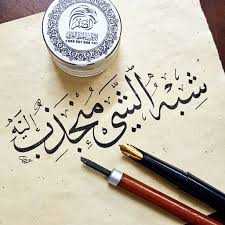 شبه الشيء منجذب إليه